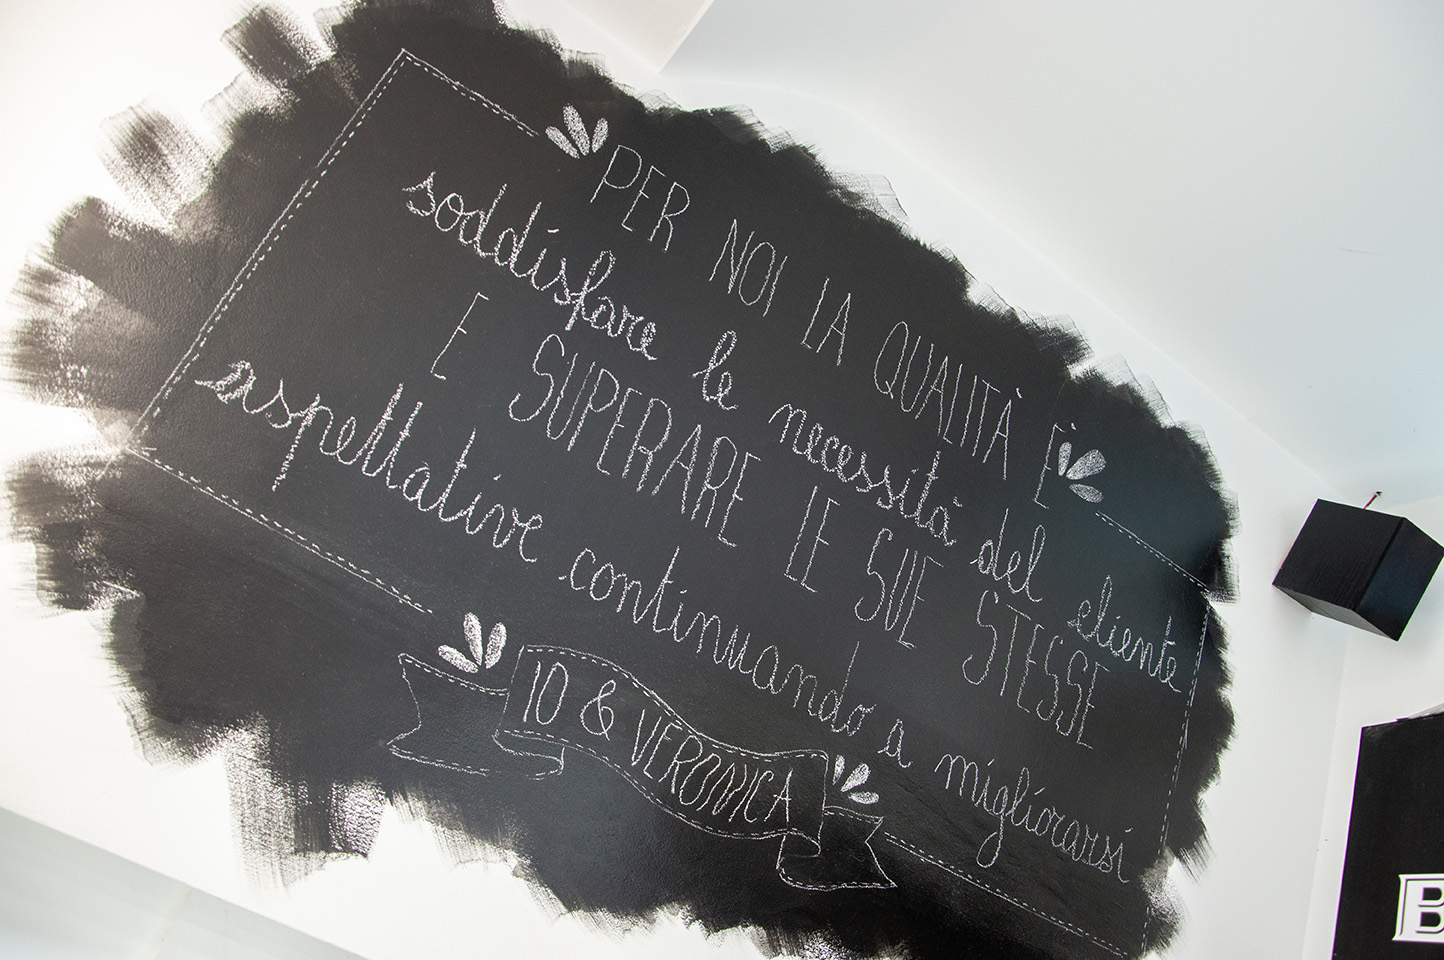 PER NOI LA QUALITÀ È
soddisfare le necessità del cliente
E SUPERARE LE SUE STESSE
aspettative continuando a migliorarsi
IO & VERONICA
B